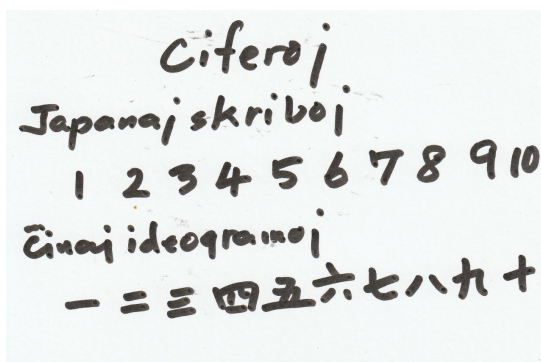 Ciferoj
Japanaj skriboj
1 2 3 4 5 6 7 8 9 10
Ĉinaj ideogramoj
一 二 三 四 五 六 七 八 九 十